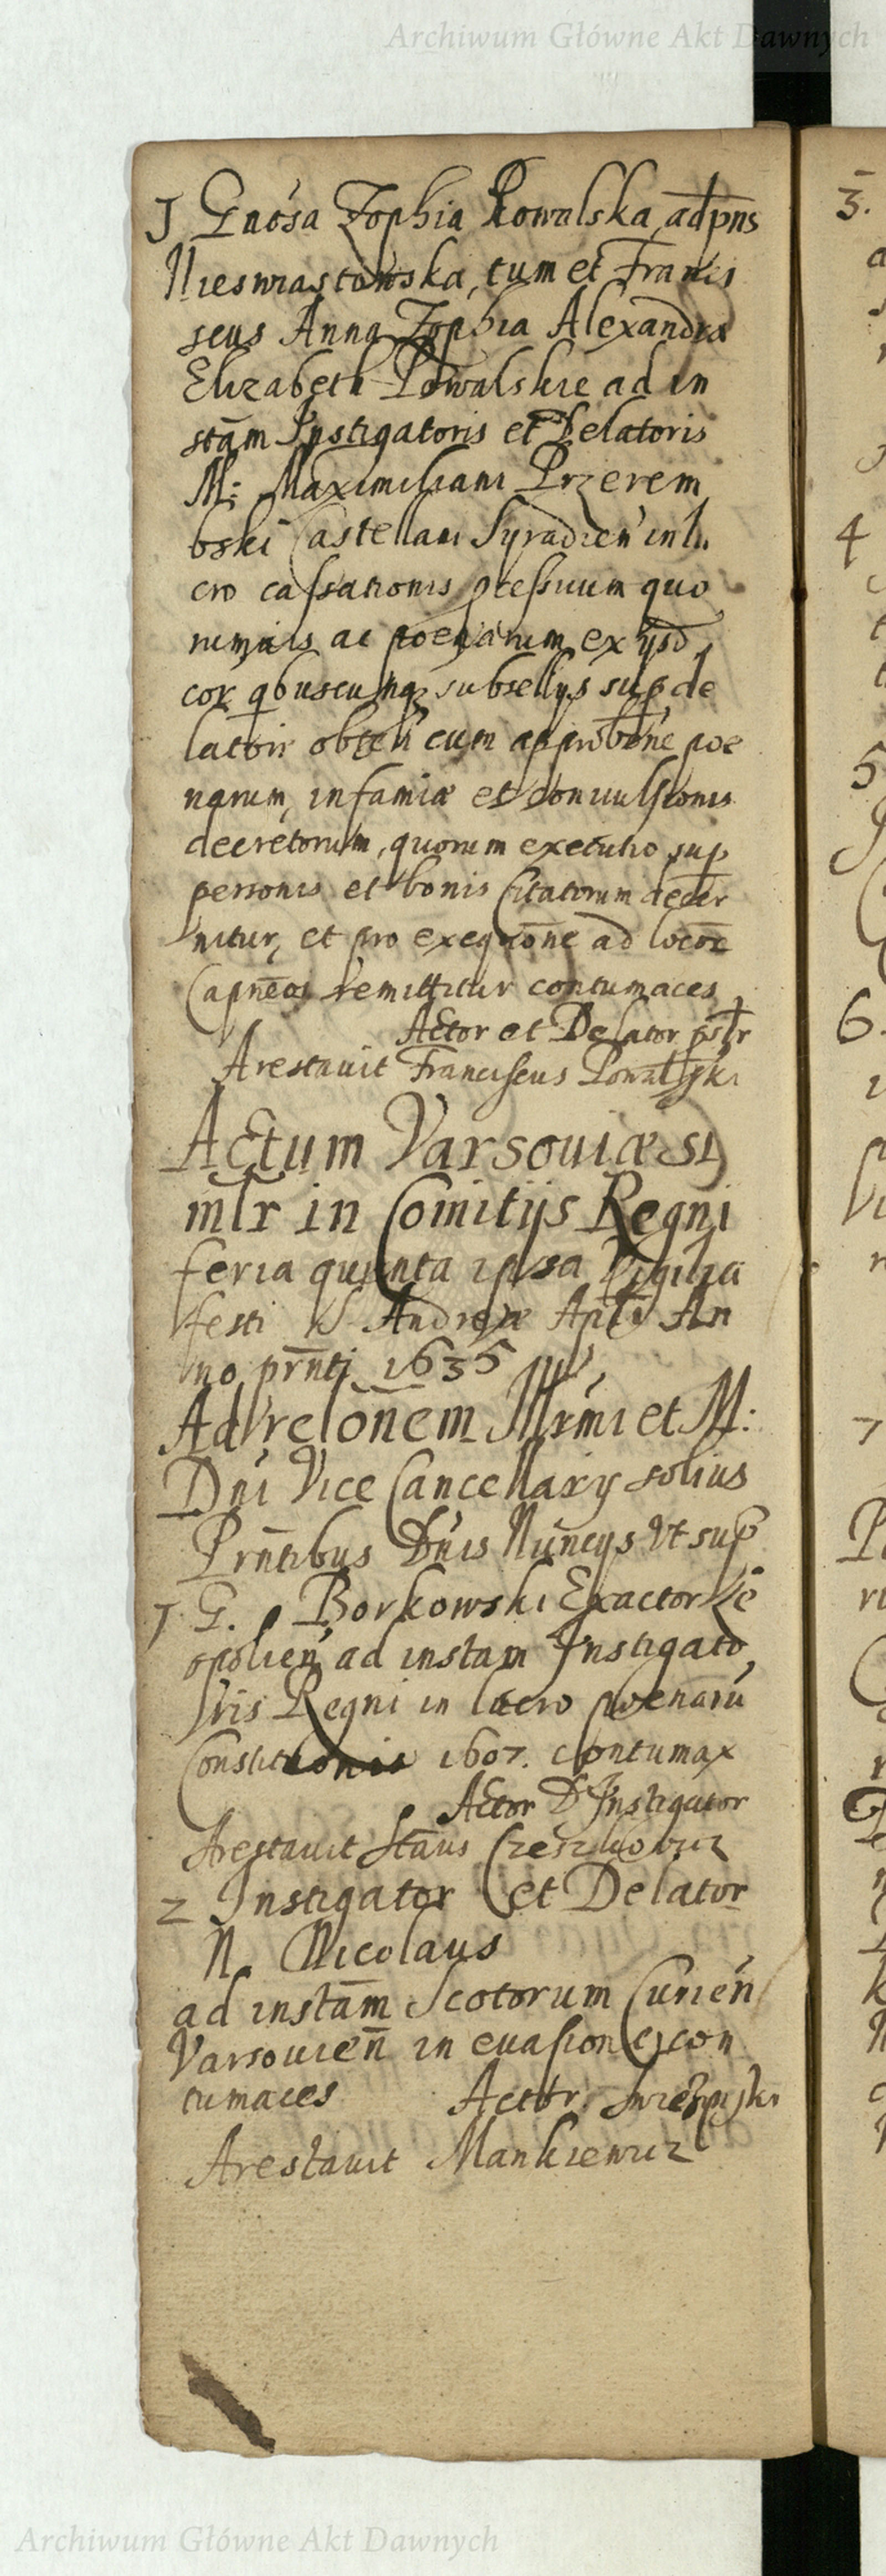 Archiwum Główne Akt Dawnych
1 Gnosa Zophia Kowalska, ad pns
Nieswiastowska, tum et Franci
scus Anna Zophia Alexandra
Elizabeth Kowalskie ad in
stām Instigatoris et Delatoris
M: Maximiliani Przerem
bski Castellani Syradień in lu
cro cassationis pcessuum quo
rumvis ac poenarum ex ijsd
cor qbuscunqz subsellijs sup de
latore obten cum approbōne poe
narum, infamiæ et convulsionis
decretorum, quorum executio sup
personis et bonis Citatorum decer
nitur, et pro exequōne ad loc
Capneos remittitur contumaces
Actor et Delator pstr
Arestavit Franciscus Kowalski
Actum Varsoviæ si
mlr in Comitijs Regni
feria quinta ipsa Vigilia
festi S Andreæ Apli An
no prnti 1635
Ad relōnem Illrmi et M:
Dni Vice Cancellarij solius
Prntibus Dnis Nuncijs Vt sup
1 G. Borkowski Exactor Le
opolień ad instam Instigato
ris Regni in lucro poenarū
Constitutionis 1607. contumax
Actor D Instigator
Arestavit Stāus
2 Instigator et Delator
N. Nicolaus
ad instām Scotorum Curień
Varsovień in evasione con
tumaces Actor
Arestavit Mankiewicz
3.
4
5
6.
7
Archiwum Główne Akt Dawnych